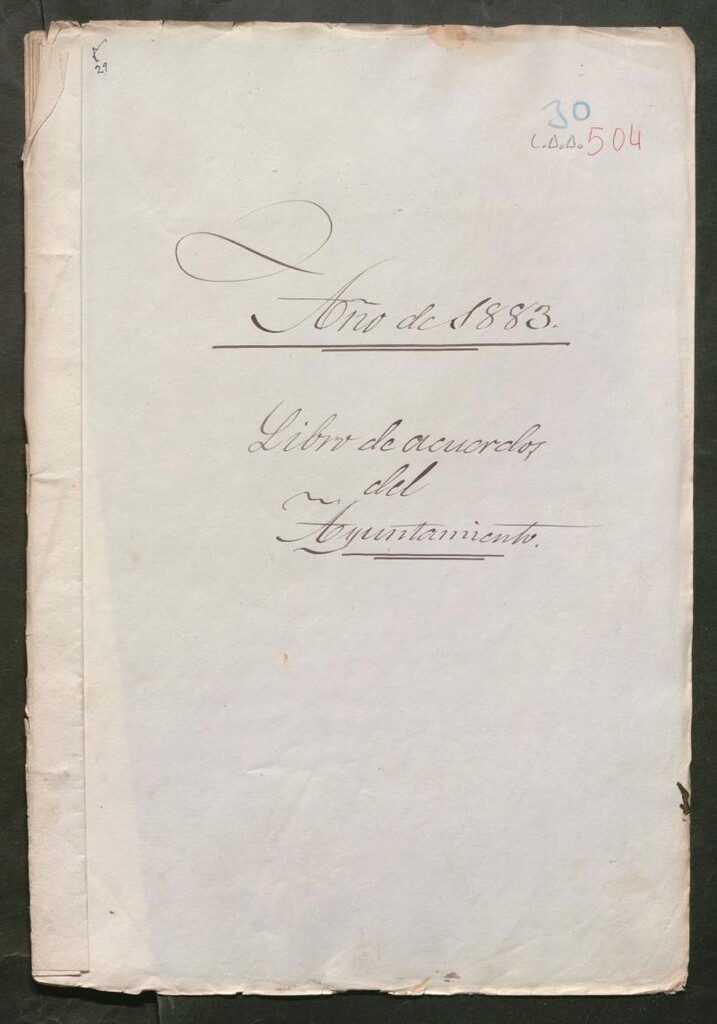 29
30
C.A.A. 504
Año de 1883.
Libro de acuerdos
del
Ayuntamiento.